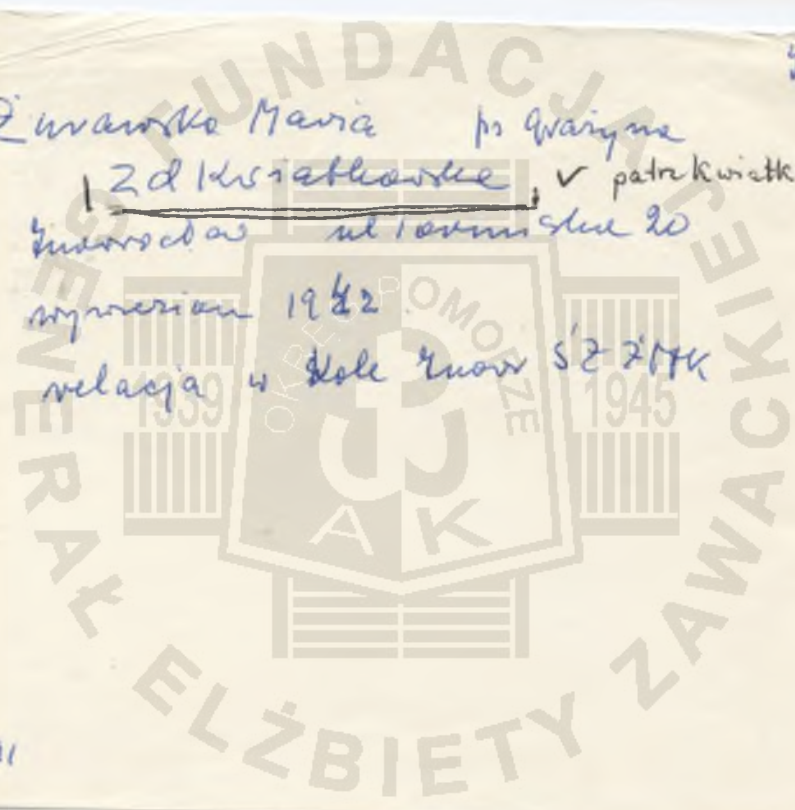 Żurawska Maria ps Grażyna
Zd Kwiatkowska, v patrz Kwiatk
Inowrocław ul Toruńska 20
1942
relacja w Kole Inowr ŚZ ŻAK
FUNDACJA
GENERAŁ ELŻBIETY ZAWACKIEJ
OKRĘG POMORZE
1939 1945
AK